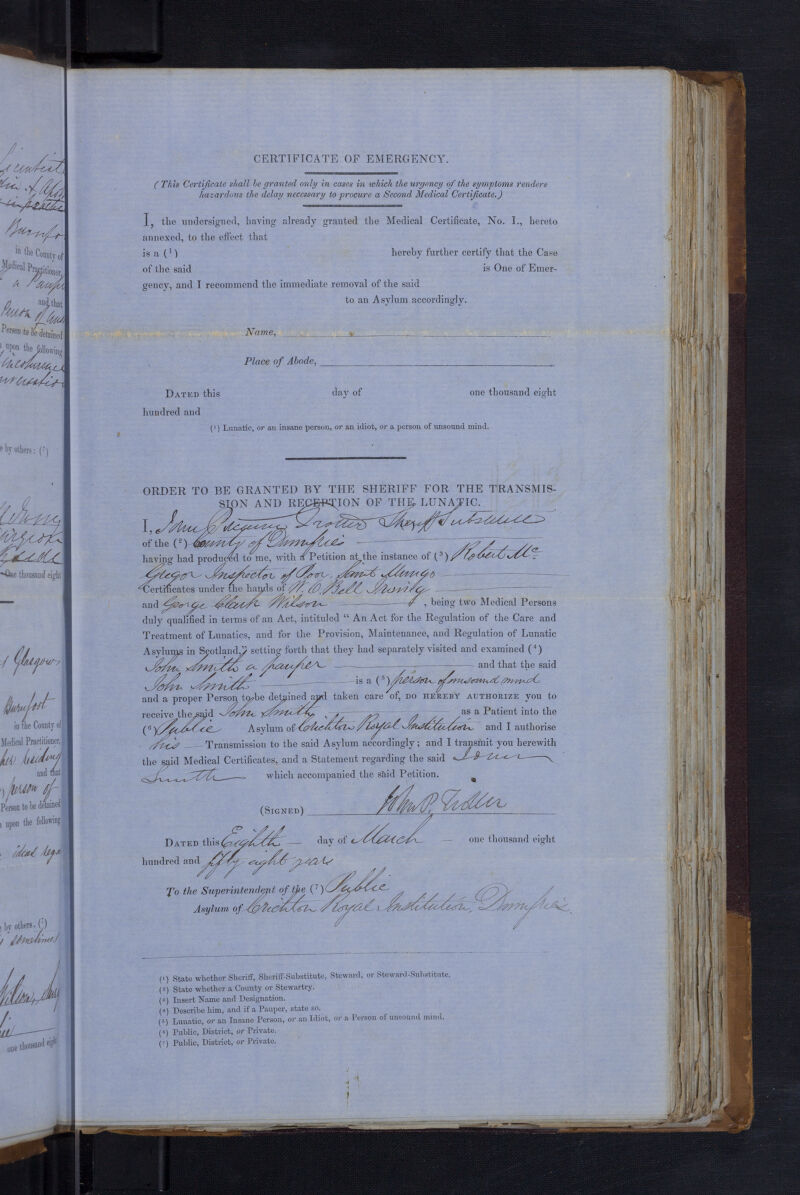 CERTIFICATE OF EMERGENCY.
(This Certificate shall be granted only in cases in which the urgency of the symptoms renders
hazardous the delay necessary to procure a Second Medical Certificate.)
I, the undersigned, having already granted the Medical Certificate, No. I., hereto
annexed, to the effect that
is a (1) hereby further certify that the Case
of the said is One of Emer-
gency, and I recommend the immediate removal of the said
to an Asylum accordingly.
Name,
Place of Abode,
DATED this day of one thousand eight
hundred and
(1) Lunatic, or an insane person, or an idiot, or a person of unsound mind.
ORDER TO BE GRANTED BY THE SHERIFF FOR THE TRANSMIS-
SION AND RECEPTION OF THE LUNATIC.
I, John Trotter Sheriff Substitute
of the (2) County of Dumfries
having had produced to me, with a Petition at the instance of (3) Robert Mc
Gregor Inspector of Poor, Saint Mungo
Certificates under the hands of W. O. Bell
and George Clark Wilson, being two Medical Persons
duly qualified in terms of an Act, intituled " An Act for the Regulation of the Care and
Treatment of Lunatics, and for the Provision, Maintenance, and Regulation of Lunatic
Asylums in Scotland," setting forth that they had separately visited and examined (4)
John Smith a pauper and that the said
John Smith is a (5) person of unsound mind
and a proper Person to be detained and taken care of, DO HEREBY AUTHORIZE you to
receive the said John Smith as a Patient into the
(6) Public Asylum of Crichton Royal Institution and I authorise
his Transmission to the said Asylum accordingly; and I transmit you herewith
the said Medical Certificates, and a Statement regarding the said John
Smith which accompanied the said Petition.
(SIGNED) John P.
DATED this Eighth day of March one thousand eight
hundred and fifty eight years
To the Superintendent of the (7) Public
Asylum of Crichton Royal Institution, Dumfries.
(1) State whether Sheriff, Sheriff-Substitute, Steward, or Steward-Substitute.
(2) State whether a County or Stewartry.
(3) Insert Name and Designation.
(4) Describe him, and if a Pauper, state so.
(5) Lunatic, or an Insane Person, or an Idiot, or a Person of unsound mind.
(6) Public, District, or Private.
(7) Public, District, or Private.